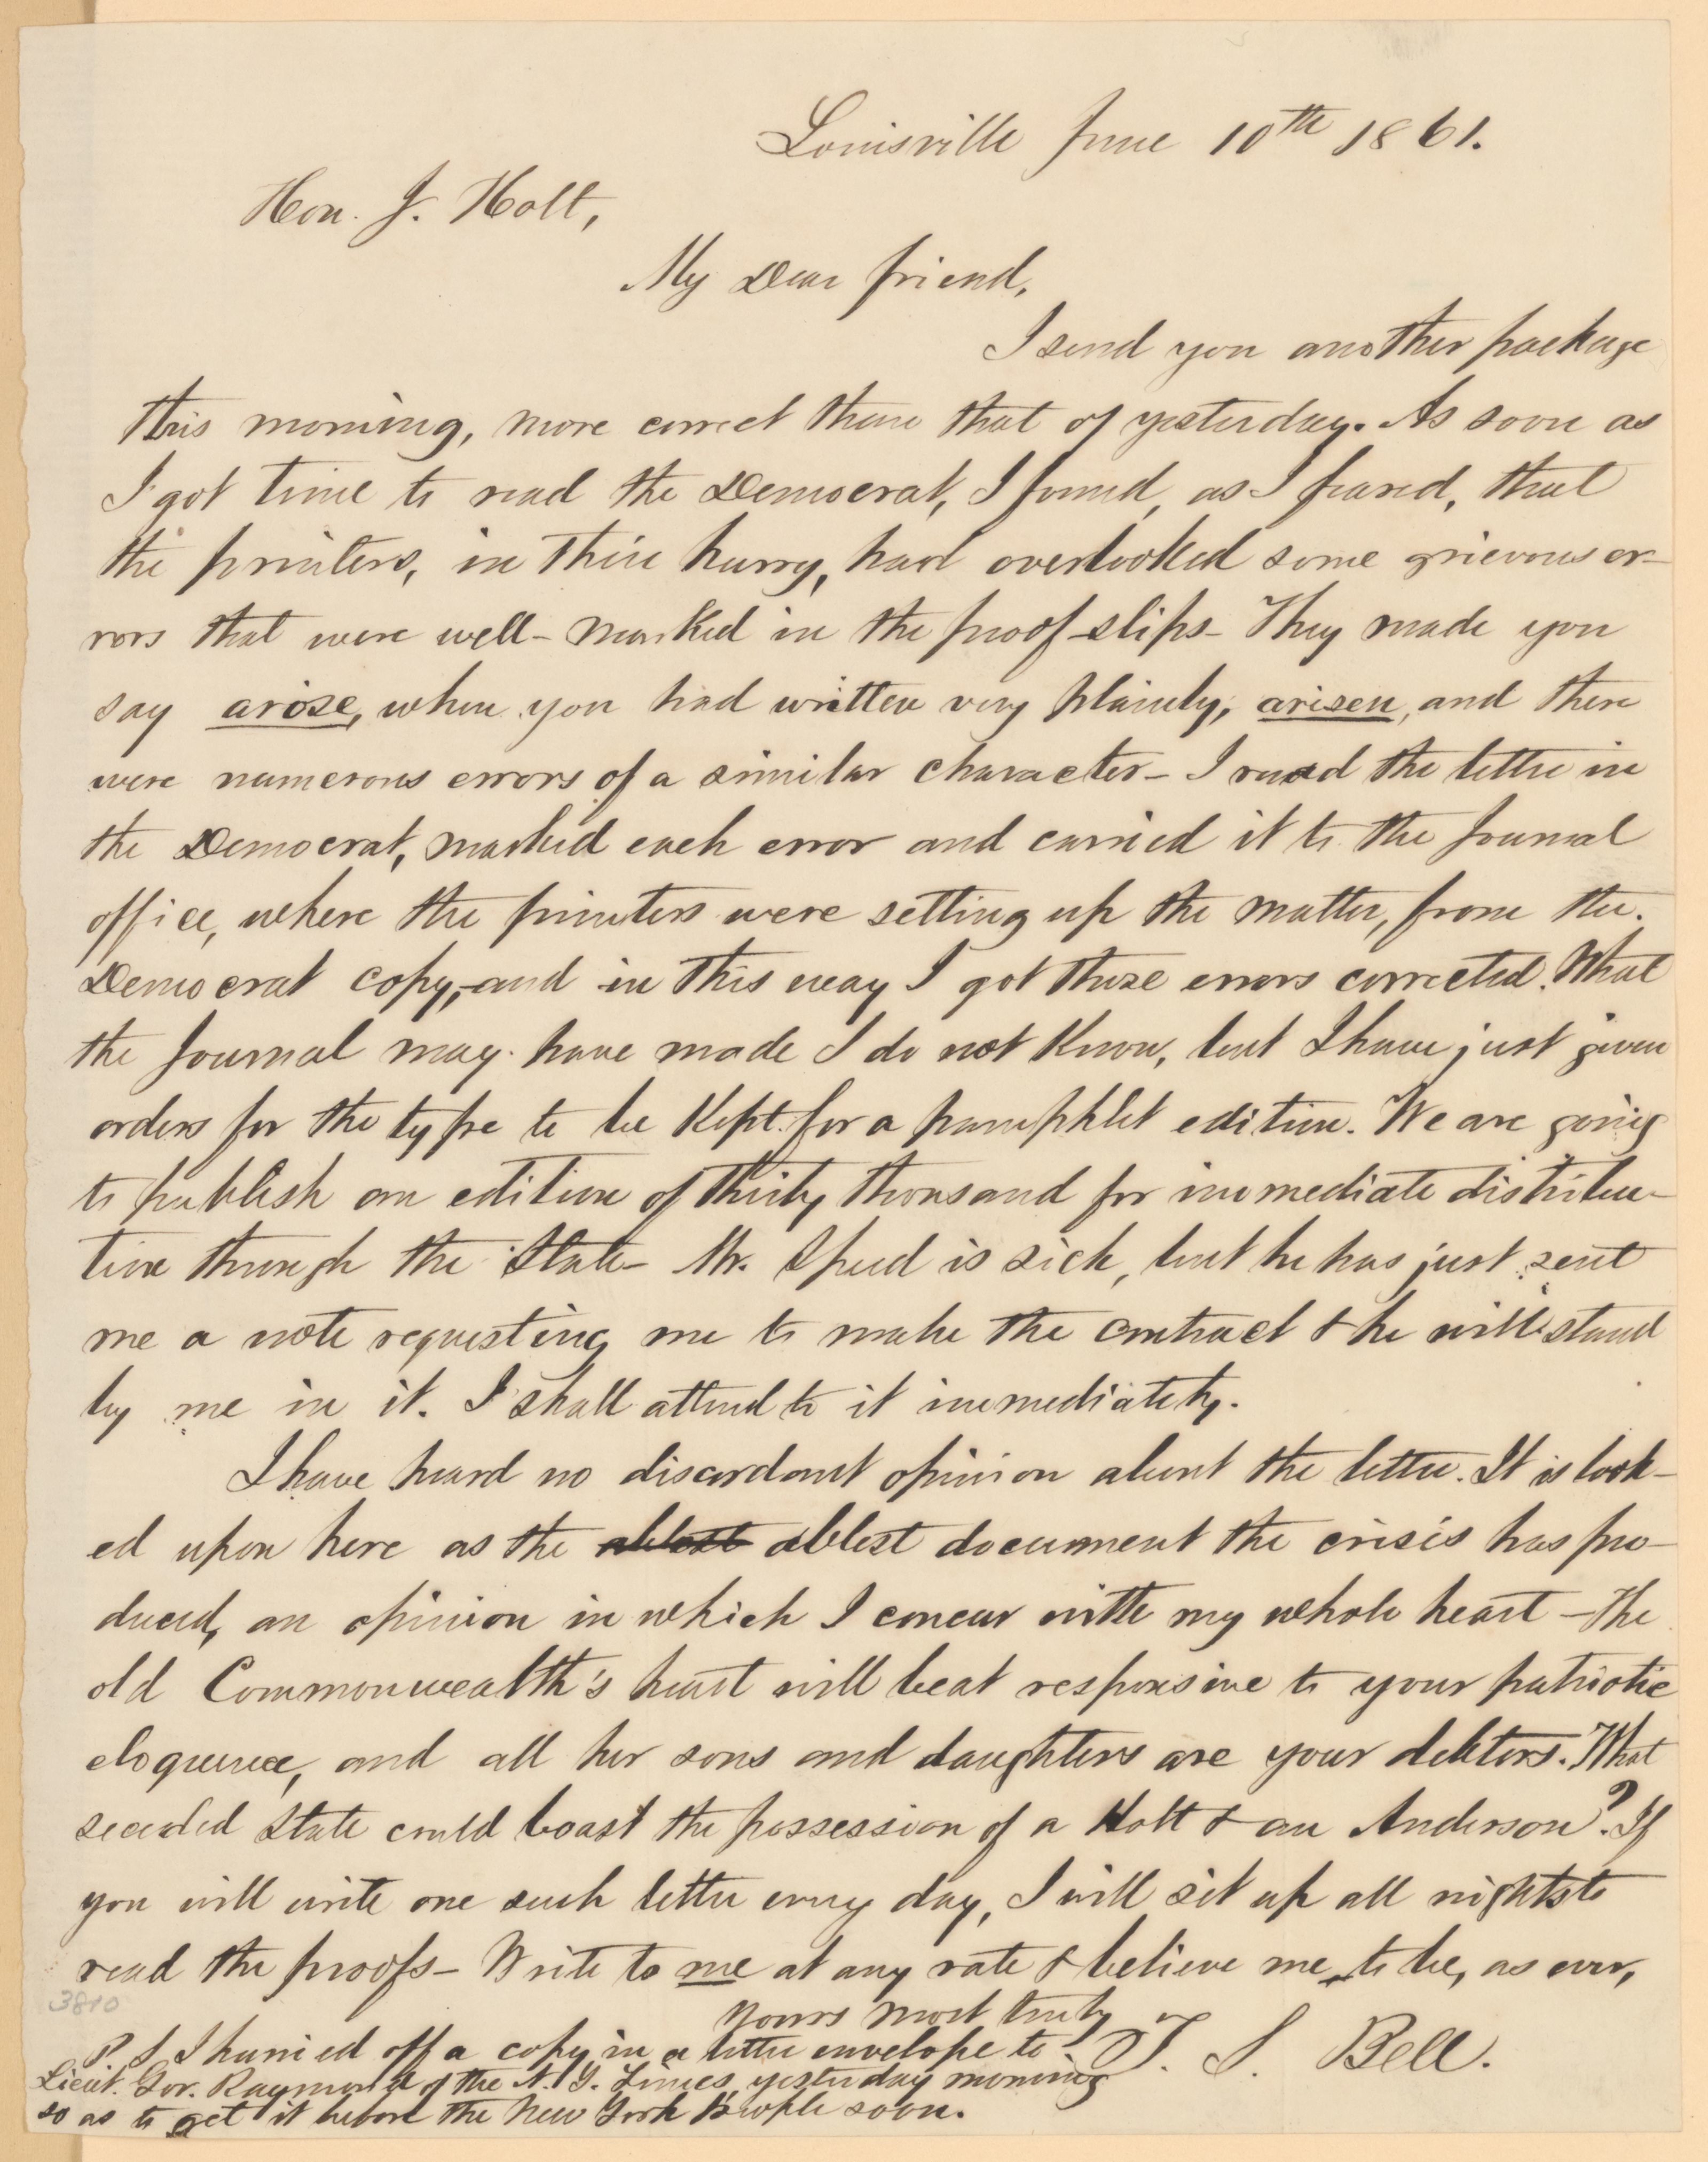 Louisville June 10th 1861.
Hon. J. Holt,
My Dear friend,
I send you another package
this morning, more correct than that of yesterday. As soon as
I got time to read the Democrat, I found, as I feared, that
the printers, in their hurry, had overlooked some grievous er-
rors that were well-marked in the proof-slips- They made you
say arose, when you had written very plainly, arisen, and there
were numerous errors of a similar character- I read the letter in
the Democrat, marked each error and carried it to the Journal
office, where the printers were setting up the matter, from the
Democrat copy, and in this way I got those errors corrected. What
the Journal may have made I do not know, but I have just given
orders for the type to be kept for a pamphlet edition. We are going
to publish an edition of thirty thousand for immediate distribu-
tion through the State- Mr. Speed is sick, but he has just sent
me a note requesting me to make the contract & he will stand
by me in it. I shall attend to it immediately.
I have heard no discordant opinion about the letter. It is look-
ed upon here as the ablest ablest document the crisis has pro-
duced, an opinion in which I concur with my whole heart - The
old Commonwealth's heart will beat responsive to your patriotic
eloquence, and all her sons and daughters are your debtors. What
seceded State could boast the possession of a Holt & an Anderson? If
you will write one such letter every day, I will sit up all nights to
read the proofs- Write to me at any rate & believe me, to be, as ever,
Yours most truly
T. S. Bell.
P. S. I hurried off a copy in a letter envelope to
Lieut. Gov. Raymond of the N. Y. Times, yesterday morning
so as to get it before the New York people soon.
3810